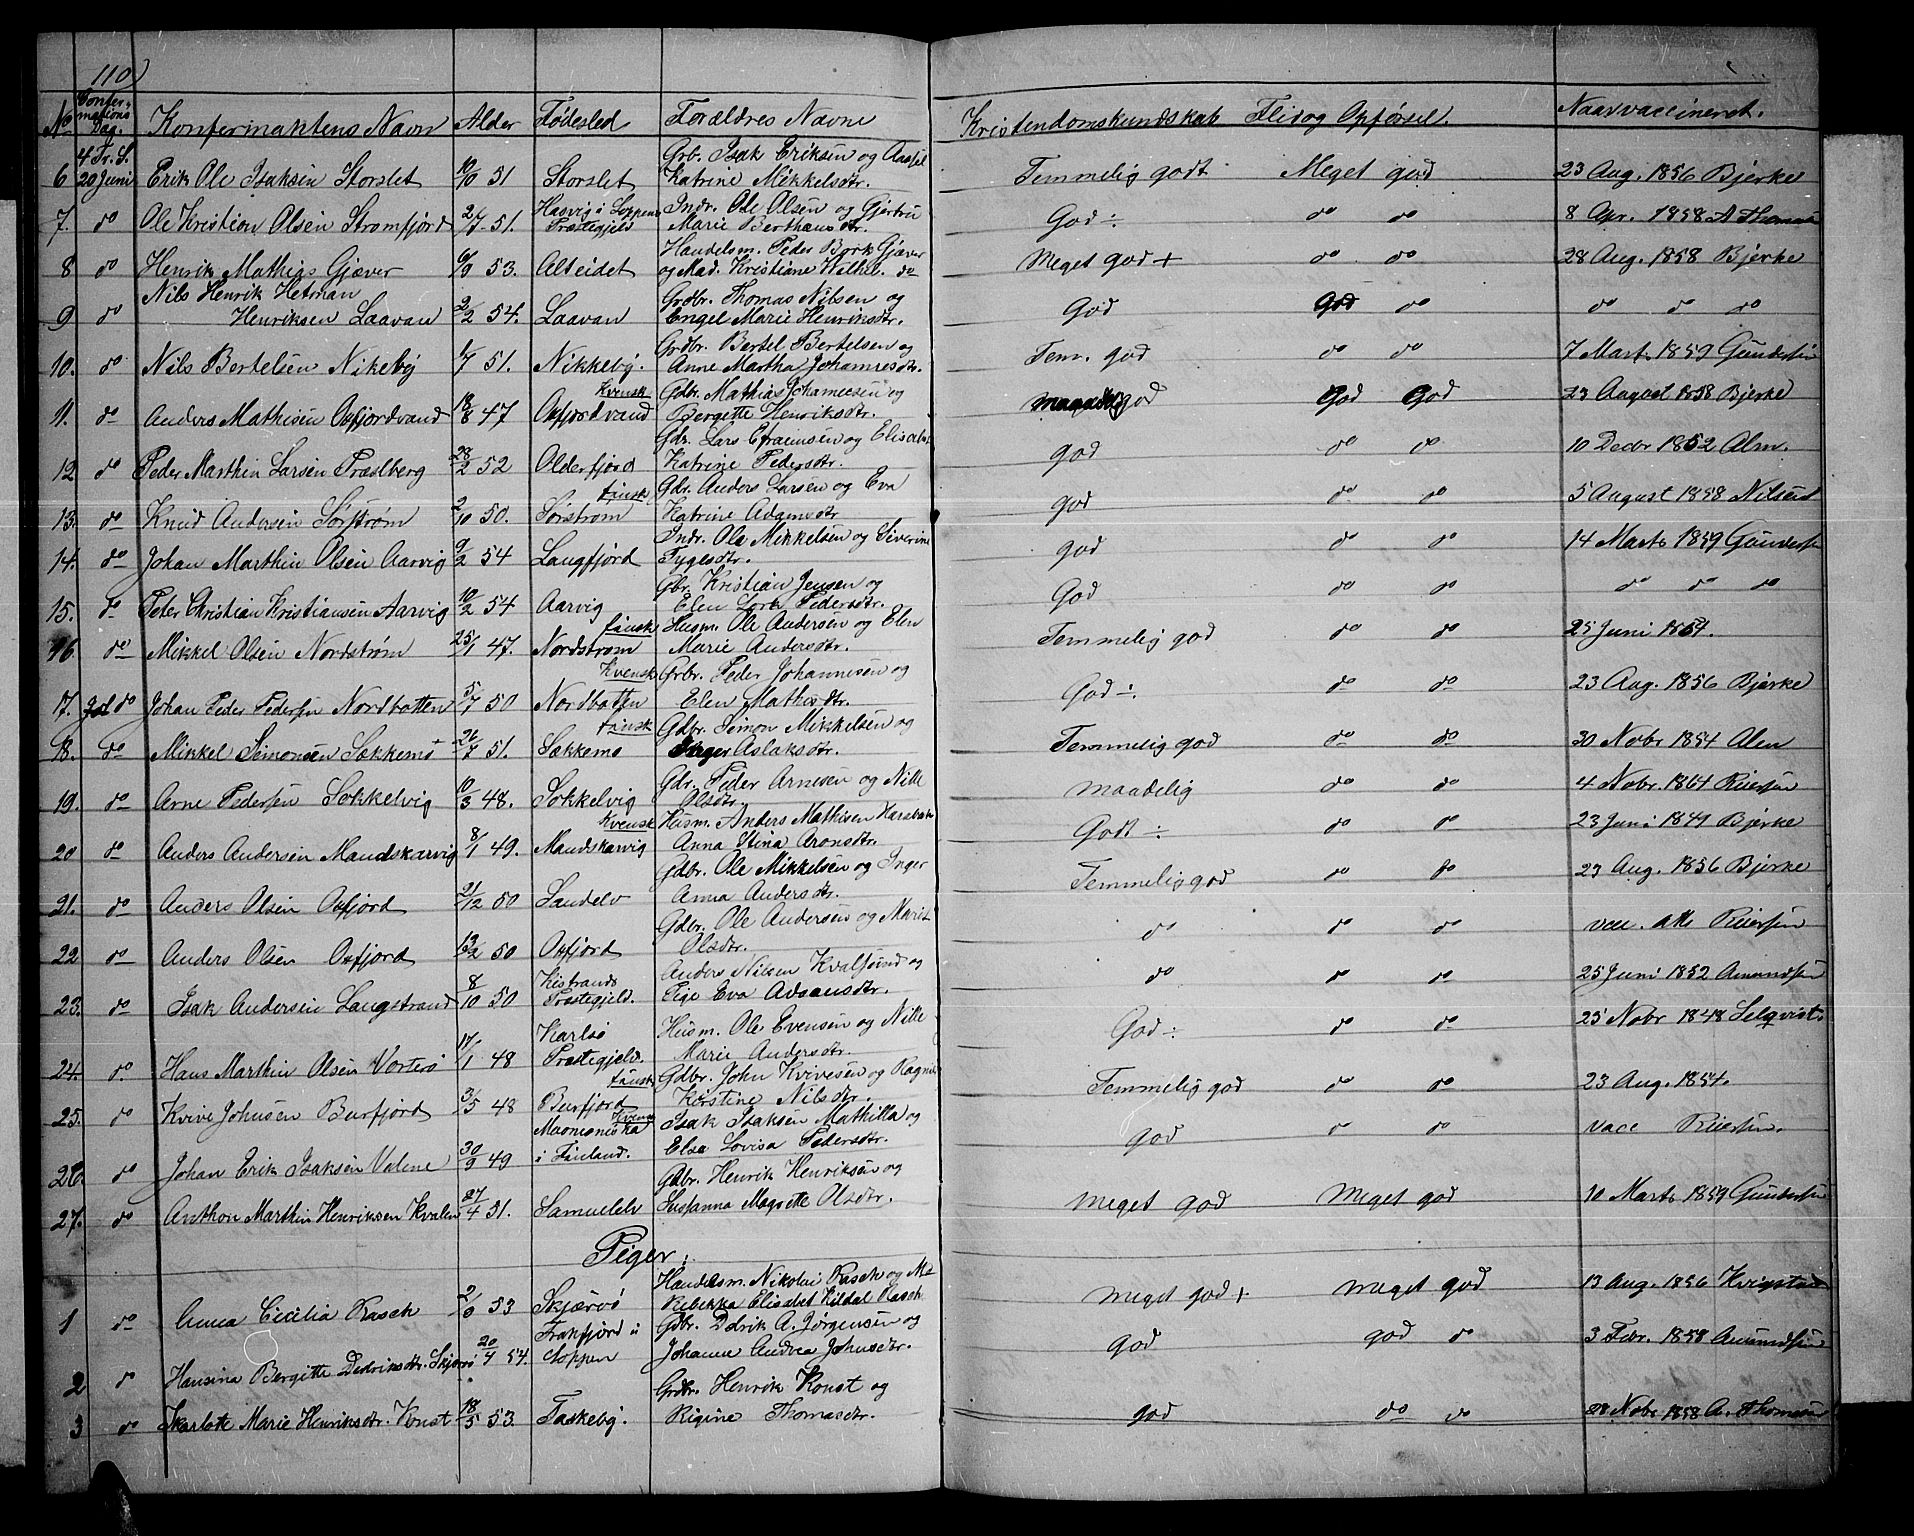 110)
No Confermations Dag. Konfermantens Navn Alder Fødested Forældres Navne Kristendomskundskab Flid og Opførsel. Naar vaccineret.
4 Tr. S. Grb. Isak Eriksen og
6 20 Juni Erik Ole Isaksen Storslet 51 Storslet Katrine Mikkelsdtr. Temmelig godt Meget god 23 Aug. 1856 Bjerke
Hasvig i Loppens Indr. Ole Olsen og Gjertru
7. do Ole Kristian Olsen Strømfjord 51. Præstegjeld Marie Berthausdtr. God ÷ do do 8 Apr. 1858 A Thomsen
Handelsm. Peder Bork Gjæver
8 do Henrik Mathias Gjæver 6/9 53. Alteidet og Mad. Kristiane Wilhel. do Meget god + do do 28 Aug. 1858 Bjerke
Nils Henrik Hetman Grdbr. Thomas Nilsen og
9 do Henriksen Laavan 2/2 54. Laavan Engel Marie Henriksdtr. God God do do do do
Grdbr. Bertel Bertelsen og
10. do Nils Bertelsen Nikeby 1/7 51. Nikkeby. Anne Martha Johannesdtr. Tem. god do do 7 Marts 1859 Gundersen
Kvensk Gdbr. Mathias Johannesen og
11. do Anders Mathisen Oxfjordvand 18/8 47 Oxfjordvand Bergette Henriksdtr. maadelig god God God 23 August 1858 Bjerke
Gdr. Lars Efraimsen og Elisabet
12 do Peder Marthin Larsen Træelberg 28/2 52 Alderfjord Katrine Pedersdtr. god do do 10 Decbr 1852 Alm.
finsk Gdr. Anders Larsen og Eva
13. do Knud Andersen Sørstrøm 2/10 50. Sørstrøm Katrine Adamsdtr god do do 5 August 1858 Nilsen
Indr. Ole Mikkelsen og Siverine
14. do Johan Marthin Olsen Aarvig 9/2 54 Langfjord Tygesdtr. god do do 14 Marts 1859 Gundersen
Gbr. Kristian Jensen og
15. do Peter Christian Kristiansen Aarvig 10/2 54 Aarvig Elen Pedersdtr. God do do do do do
finsk Husm. Ole Andersen og Elen
16. do Mikkel Olsen Nordstrøm 25/1 47. Nordstrøm Marie Andersdtr. Temmelig god do do 25 Juni 1854.
Kvensk Grbr. Peder Johannesen og
17. do Johan Peder Pedersen Nordbotten 5/7 50 Nordbotten Elen Mathisdtr. God ÷ do do 23 Aug. 1856 Bjerke
finsk Gdbr. Simon Mikkelsen og
18. do Mikkel Simonsen Sakkemo 26/7 51. Sakkemo Inger Aslaksdtr. Temmelig god do do 30 Nobr 1854 Alm
Gdr. Peder Arnesen og Nille
19. do Arne Pedersen Sokkelvig 10/3 48. Sokkelvig Olsdtr. maadelig do do 4 Nobr. 1864 Riersen
Kvensk Husm. Anders Mathisen
20 do Anders Andersen Mandskarvig 8/1 49. Mandskarvig Anna Stina Aronsdtr. Godt ÷ do do 23 Juni 1849 Bjerke
Gdbr. Ole Mikkelsen og Inger
21. do Anders Olsen Oxfjord 21/12 50 Sandelv Anna Andersdtr. Temmelig god do do 23 Aug. 1856 Bjerke
Gdbr. Ole Andersen og Marit
22 do Anders Olsen Oxfjord 13/2 50 Oxfjord Olsdtr. do do do vac. atts Riersen
Kistrands Anders Nilsen Kvalsund og
23. do Isak Andersen Langstrand 8/10 50 Præstegjeld. Pige Eva Adamsdtr. do do do 25 Juni 1852 Amundsen
Karlsø Husm. Ole Evensen og Nille
24. do. Hans Marthin Olsen Vorterø 17/1 48 Præstegjeld. Marie Andersdtr. God ÷ do do 25 Nobr 1848 Selqvist
finsk Gdbr. John Kvivesen og Ragnil
25. do Kvive Johnsen Burfjord 3/5 48 Burfjord Kerstine Nilsdtr. Temmelig god do do 23 Aug. 1854.
Maonioniska Kvensk Isak Isaksen Mathilla og
26. do Johan Erik Isaksen Valene 30/9 49 i Finland. Elsa Lovisa Pedersdtr. god do do vacc Riersen.
Gdbr. Henrik Henriksen og
27. do Anthon Marthin Henriksen Kvalen 27/4 51. Samuelelv Susanna Magrette Olsdtr. meget god Meget god 10 Marts 1859 Gundersen
Piger.
Handelsm. Nikolai Rasch og M.
1 do Anna Cecilia Rasch 53 Skjærvø Rebekka Elisabet Kildal Rasch meget god + meget god 13 Aug. 1856
Frakfjord i Gdbr. Didrik A. Jørgensen og
2 do Hansina Bergitte Dedriksdtr. Skjærvø 20/4 54. Loppen Johanne Andrea Johnsdtr. god god do 3 Febr. 1858 Amundsen
Grdbr. Henrik Konst og
3 do Skarlote Marie Henriksdtr. Konst 18/5 53. Taskeby. Rigine Thomasdtr. god do do 28 Nobr 1858 A. Thomsen